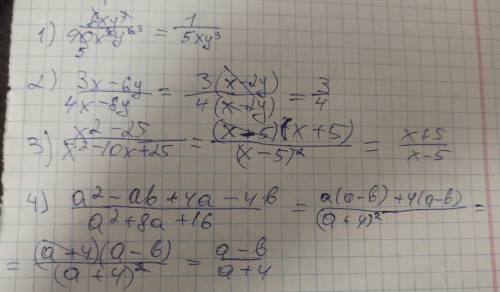 1) 8xy³/40x²y⁶ = 1/5xy³
2) 3x-6y/4x-8y = 3(x-2y)/4(x-2y) = 3/4
3) x²-25/x²-10x+25 = (x-5)(x+5)/(x-5)² = x+5/x-5
4) a²-ab+4a-4b/a²+8a+16 = a(a-b)+4(a-b)/(a+4)² =
= (a+4)(a-b)/(a+4)² = a-b/a+4